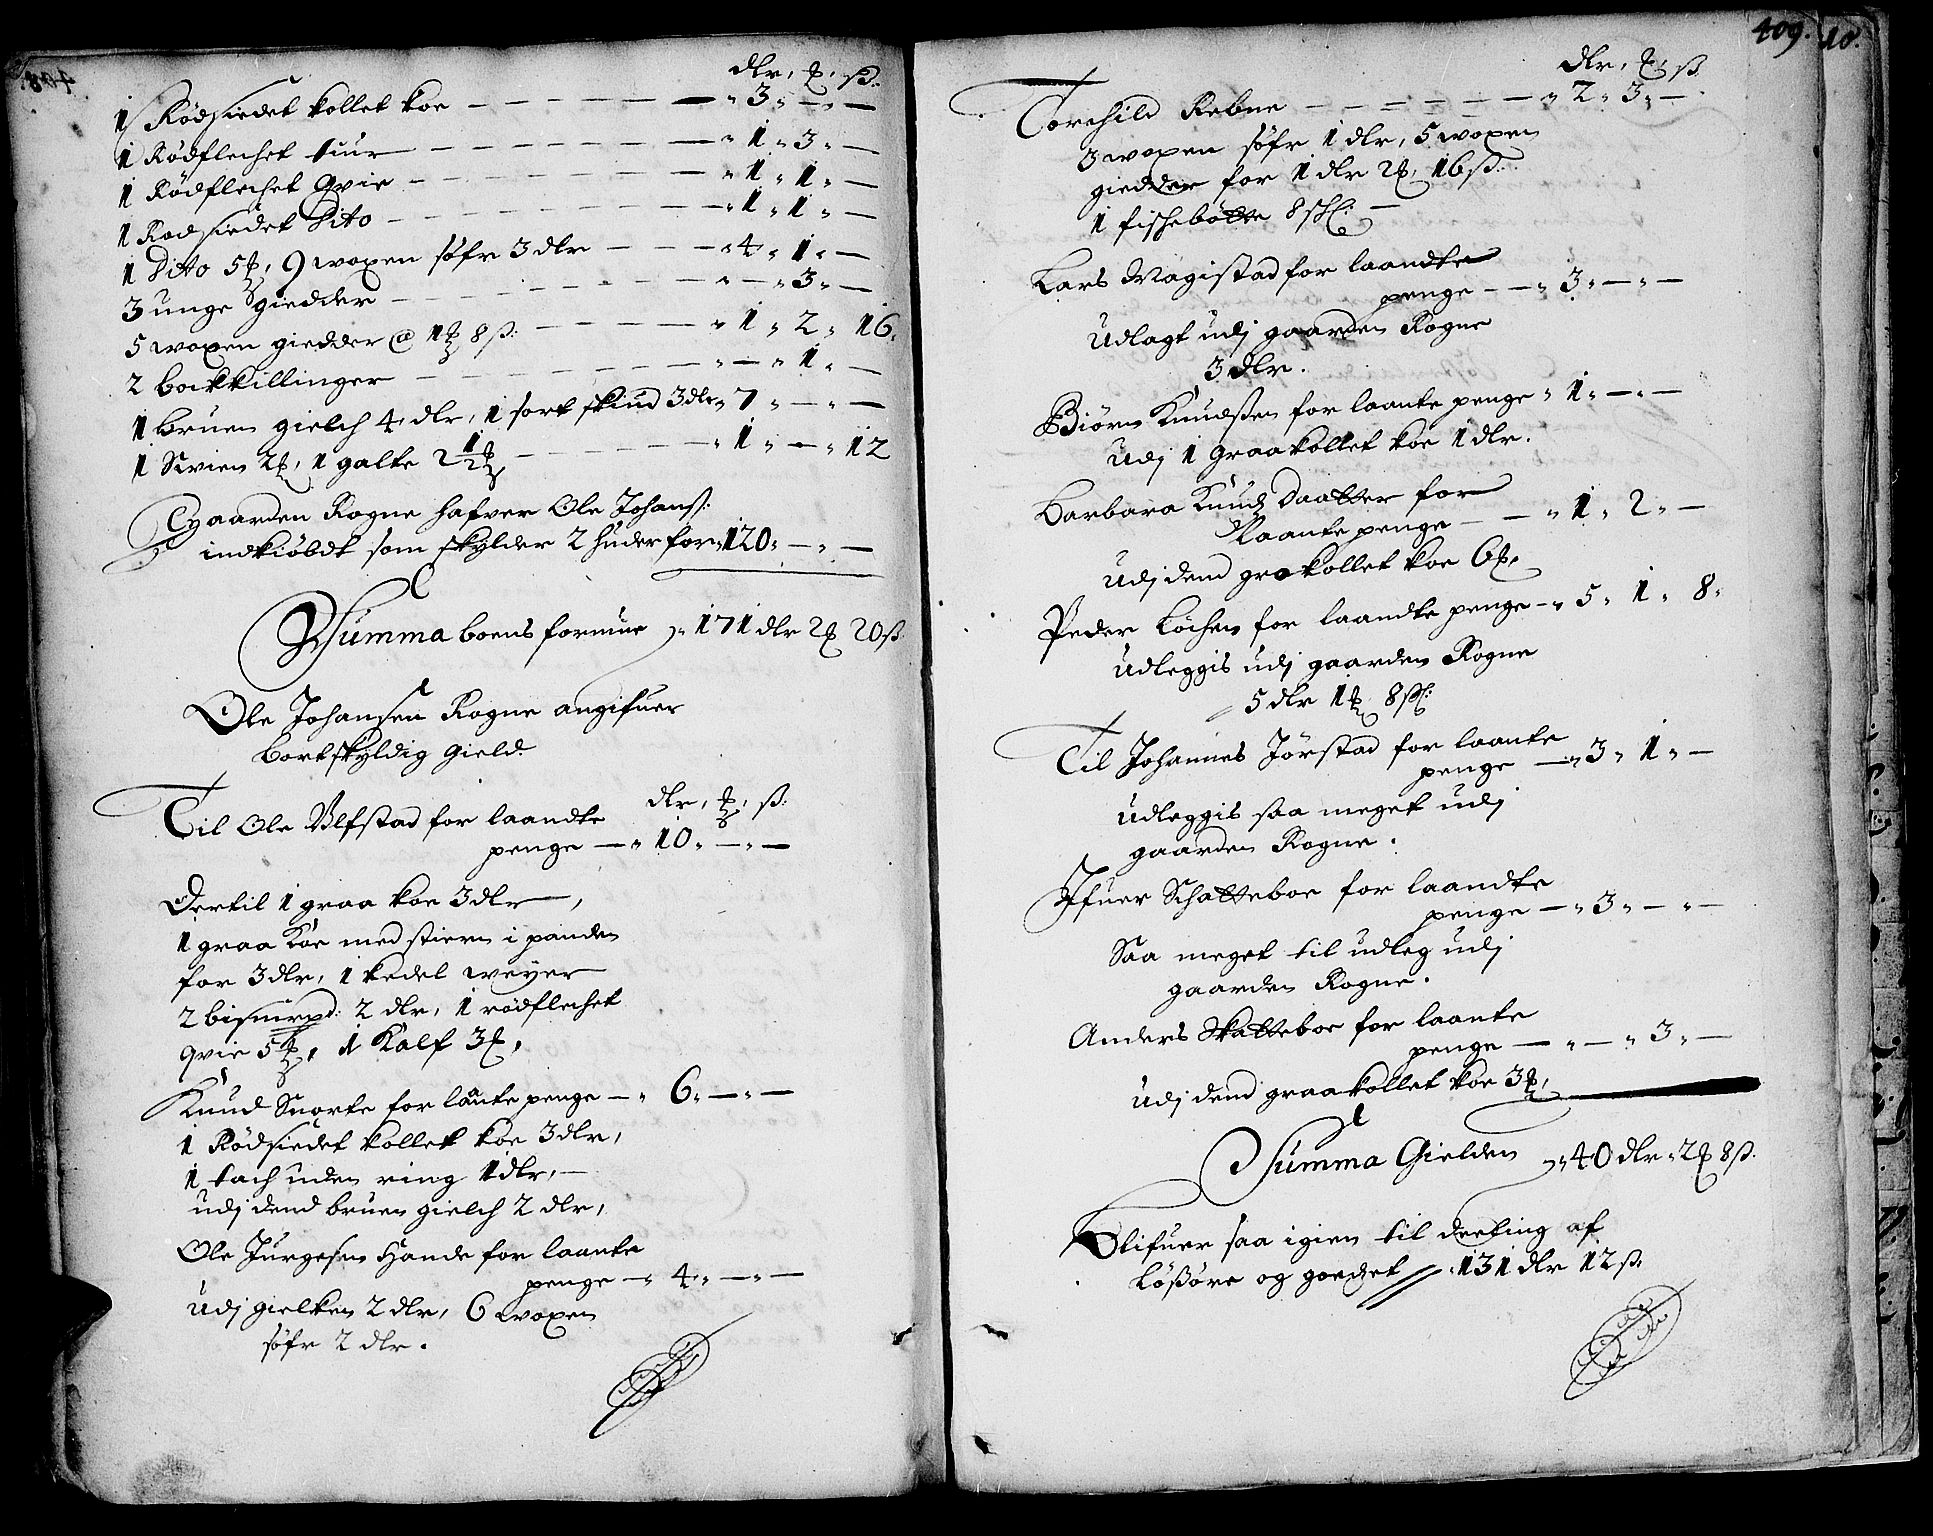 dlr, ꝣ, ß.
1 Rødsiedet kollet koe — — — „ 3 „ — „ —
1 Rødflechet tuur — — — „ 1 „ 3 „ —
1 Rødflechet Qvie — — — „ 1 „ 1 „ —
1 Rødsiedet Dito — — — „ 1 „ 1 „ —
1 Dito 5ꝣ, 9 woxen søfr 3 dlr — — „ 4 „ 1 „ —
3 unge giedder — — — „ — „ 3 „ —
5 woxen giedder @ 1ꝣ 8ß: — — „ 1 „ 2 „ 16.
2 bockkillinger — — — „ — „ 1 „ —
1 bruen gielch 4 dlr, 1 sort skiud 3dlr „ 7 „ — „ —
1 Svien 2ꝣ, 1 galte 2½ꝣ — — „ 1 „ — „ 12
Gaarden Rogne hafver Ole Johans:
indkiøbdt som skylder 2 huder for „ 120 „ — „ —
Summa boens formue „ 171 dlr 2ꝣ 20ß.
Ole Johansen Rogne angifuer
bortskyldig gield.
dlr, ꝣ, ß:
Til Ole Ulfstad for laandte
penge — „ 10 „ — „ —
Dertil 1 graa koe 3 dlr,
1 graa koe med stiern i panden
for 3 dlr, 1 kedel weyer
2 bismerpd: 2 dlr, 1 rødflechet
qvie 5ꝣ, 1 Kalf 3ꝣ,
Knud Snorte for laante penge — „ 6 „ — „ —
1 Rødsiedet kollet koe 3 dlr,
1 tach uden ring 1 dlr, —
udj dend bruen gielch 2 dlr,
Ole Jurgesen Hande for laante
penge — „ 4 „ — „ —
Udj gielken 2 dlr, 6 woxen
søfr 2 dlr.
409. 10.
dlr, ꝣ, ß
Torchild Rebne — — — „ 2 „ 3 „ —
3 woxen søfr 1 dlr, 5 woxen
giedder for 1 dlr 2ꝣ, 16ß.
1 fischebøtte 8 sk: —
Lars Magistad for laandte
penge — — „ 3 „ — „ —
Udlagt udj gaarden Rogne
3 dlr.
Biørn Knudsen for laante penge „ 1 „ — „ —
udj 1 graakollet koe 1 dlr.
Barbara Knudz Daatter for
laante penge — — „ 1 „ 2 „ —
udj dend grakollet koe 6ꝣ.
Peder Løchen for laandte penge — „ 5 „ 1 „ 8 „
udleggis udj gaarden Rogne
5 dlr 1ꝣ 8 sk:
Til Johannes Jørstad for laante
penge — „ 3 „ 1 „ —
udleggis saa meget udj
gaarden Rogne.
Ifuer Schatteboe for laandte
penge — „ 3 „ — „ —
Saa meget til udleg udj
gaarden Rogne.
Anders Skatteboe for laante
penge — „ — „ 3 „ —
udj dend graakollet koe 3ꝣ,
Summa Gielden „ 40 dlr „ 2ꝣ 8ß.
Blifuer saa igien til deeling af
Løsøre og goedzet „ 131 dlr 12ß.